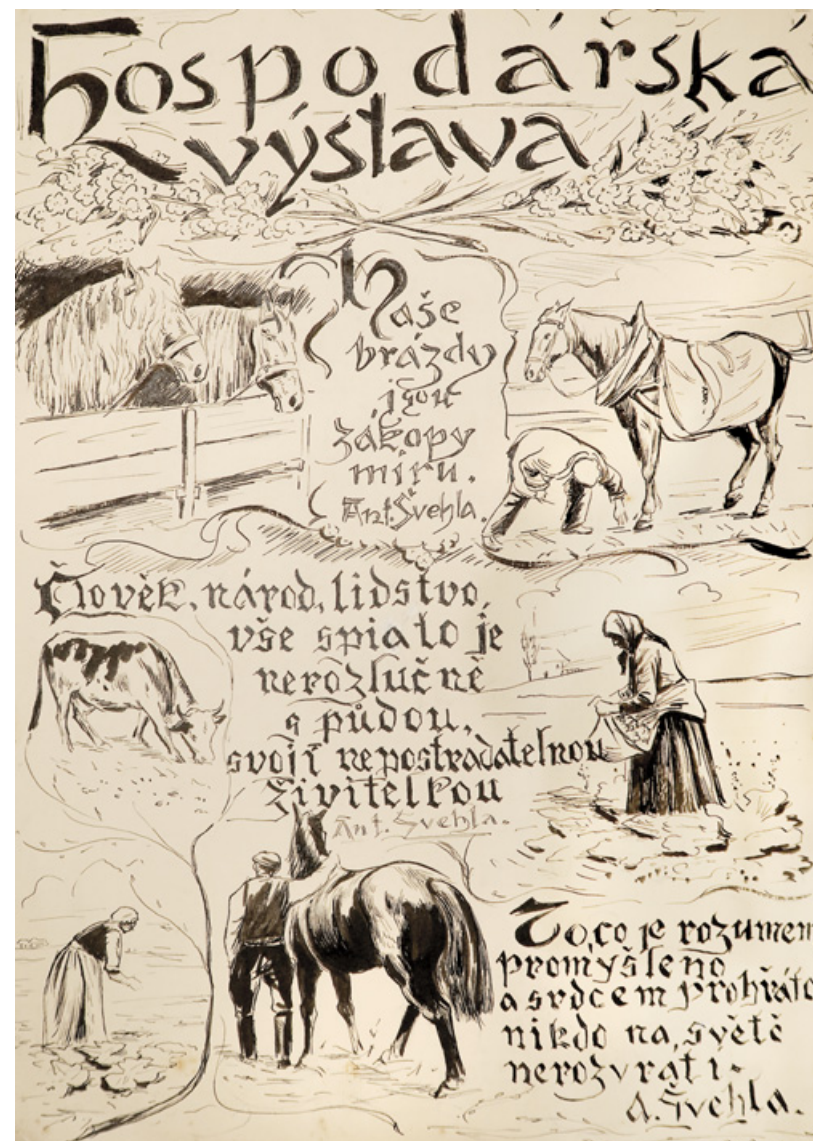 Hospodářská
výstava
Naše
brázdy
jsou
zákopy
míru.
Ant. Švehla.
Člověk, národ, lidstvo,
vše spiato je
nerozlučně
s půdou,
svojí nepostradatelnou
živitelkou
Ant. Švehla.
To, co je rozumem
promyšleno
a srdcem prohřáto
nikdo na, světě
nerozvrati.
A. Švehla.